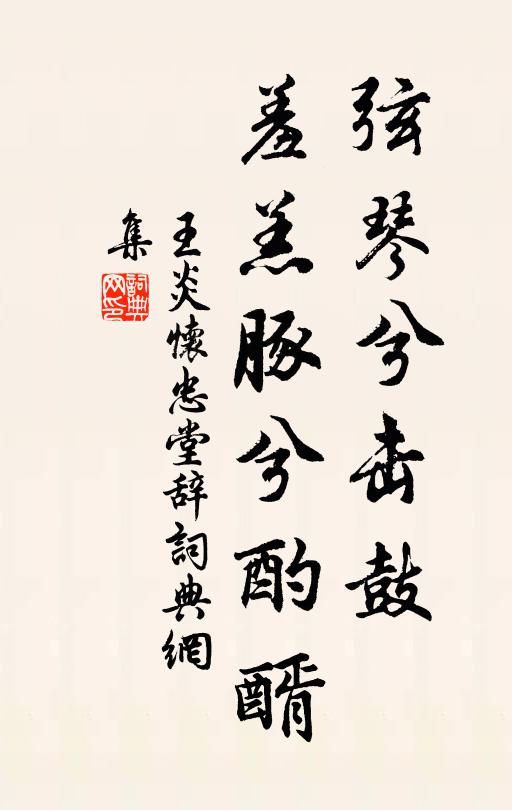 弦琴兮击鼓
羞羔豚兮酌醑
王炎懷忠堂辞詞典網
集
詞典
网印